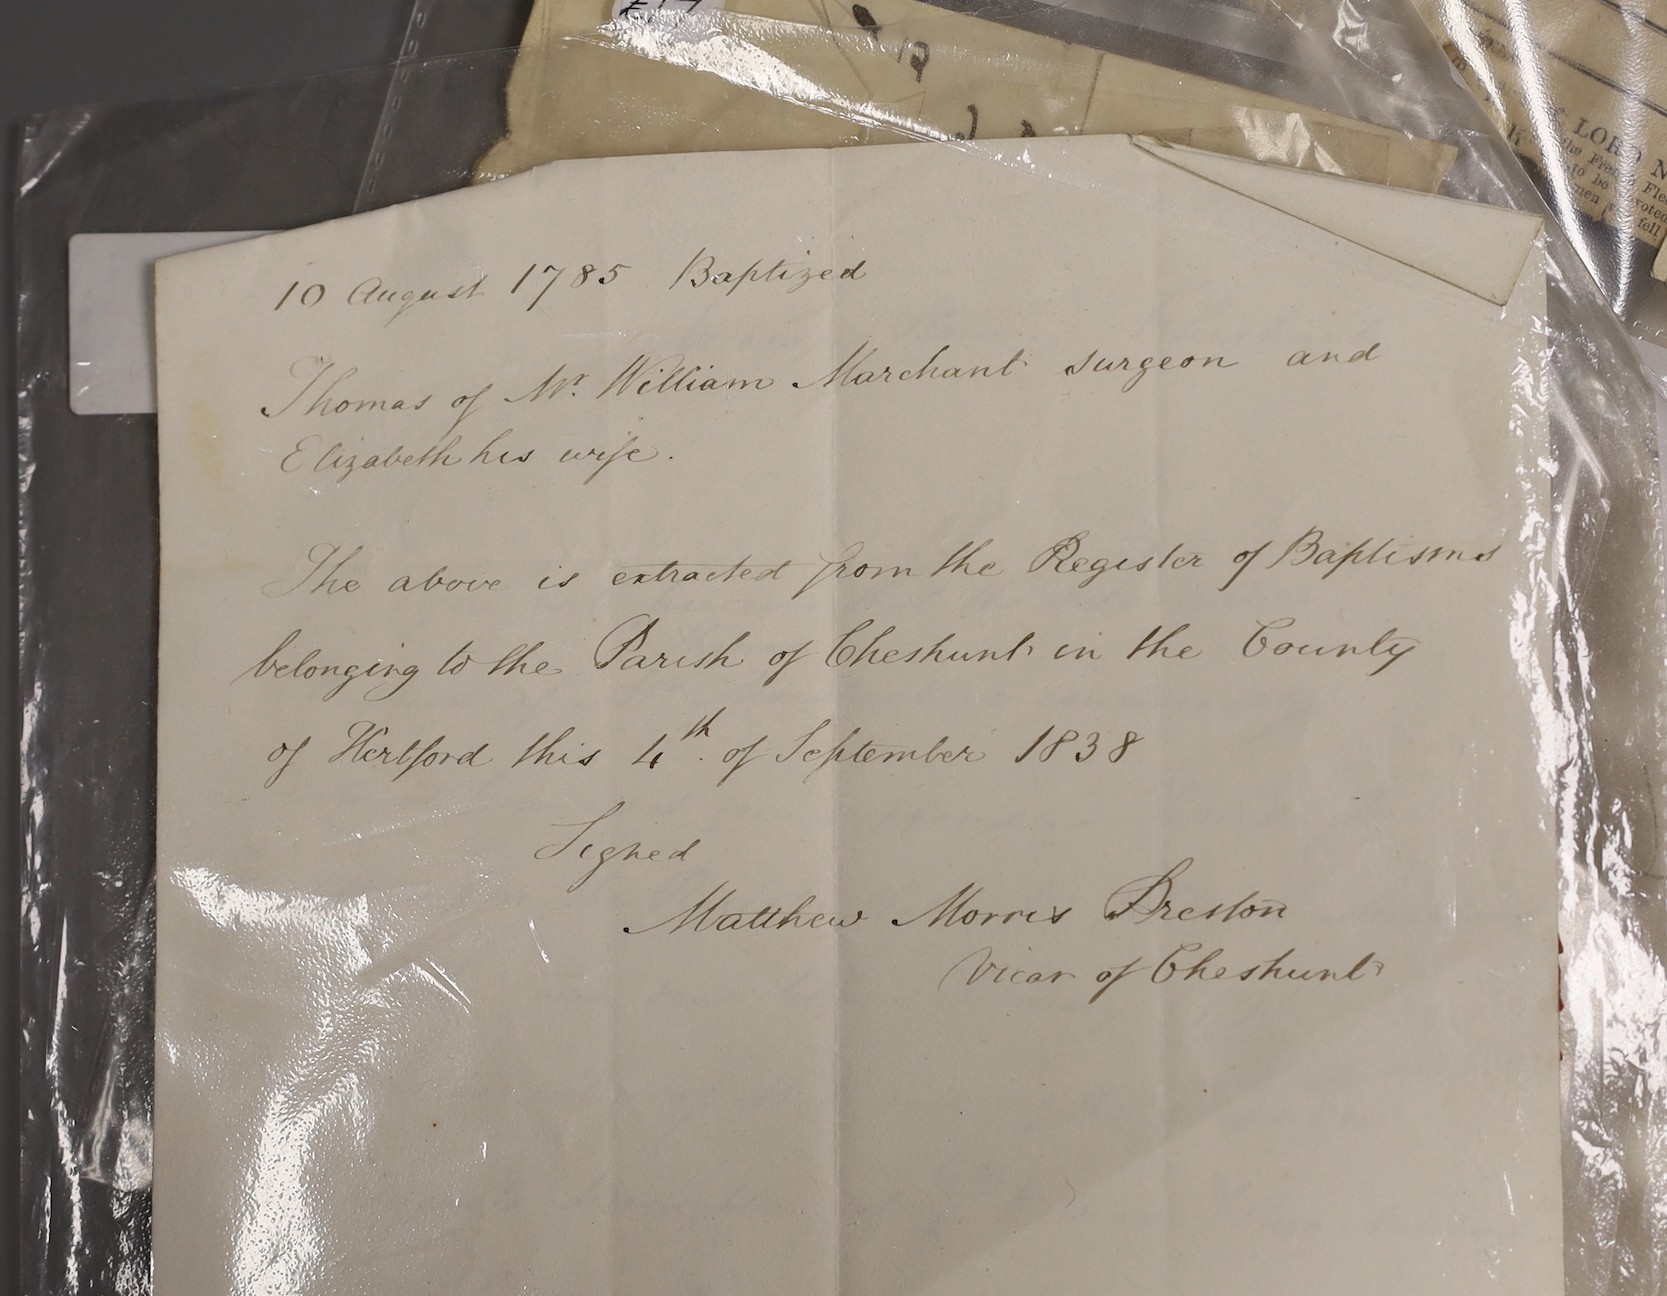 10 August 1785 Baptized
Thomas of Mr. William Marchant surgeon and
Elizabeth his wife.
The above is extracted from the Register of Baptisms
belonging to the Parish of Cheshunt in the County
of Hertford this 4th. of September 1838
Signed
Matthew Morris Preston
Vicar of Cheshunt
LORD N
the French Flee
to be
voted
men
fell